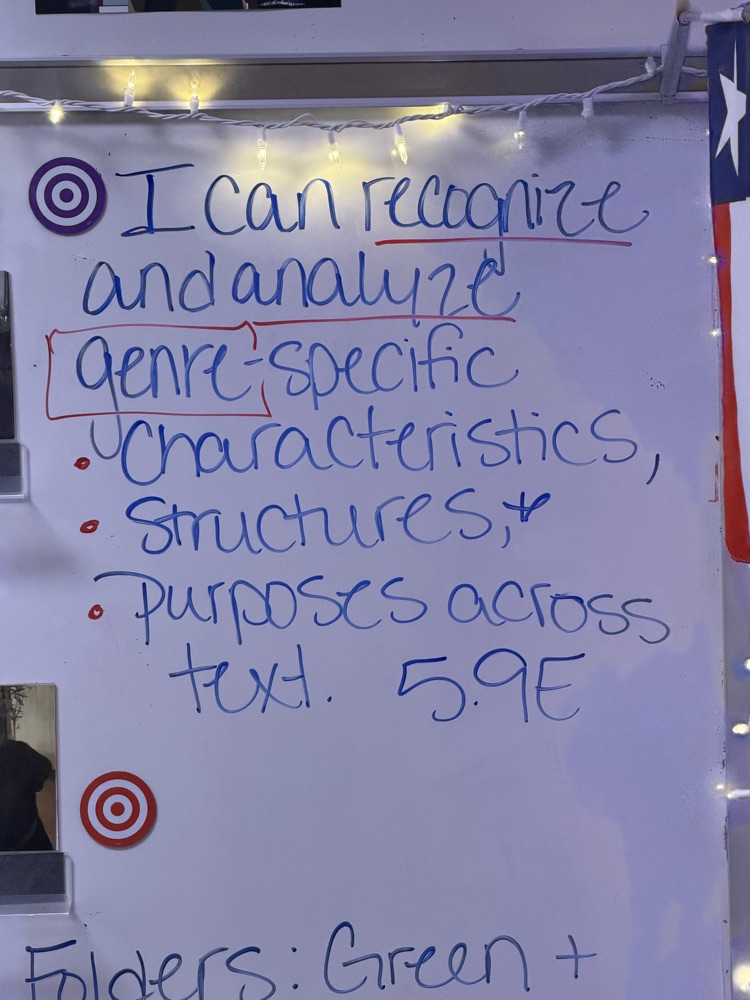 I can recognize
and analyze
genre-specific
• characteristics,
• structures, +
• purposes across
text. 5.9E
Folders: Green +